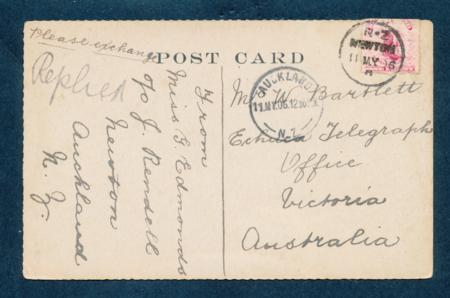 Please exchange
POST CARD
Replied
From
Miss E. Edmonds
c/o J. Rendell
Newton
Auckland
N. Z.
N.Z
NEWTON
11 MY 06
AUCKLAND
11.MY.06.12
N.Z
Mr W. Bartlett
Echuca Telegraph
Office
Victoria
Australia